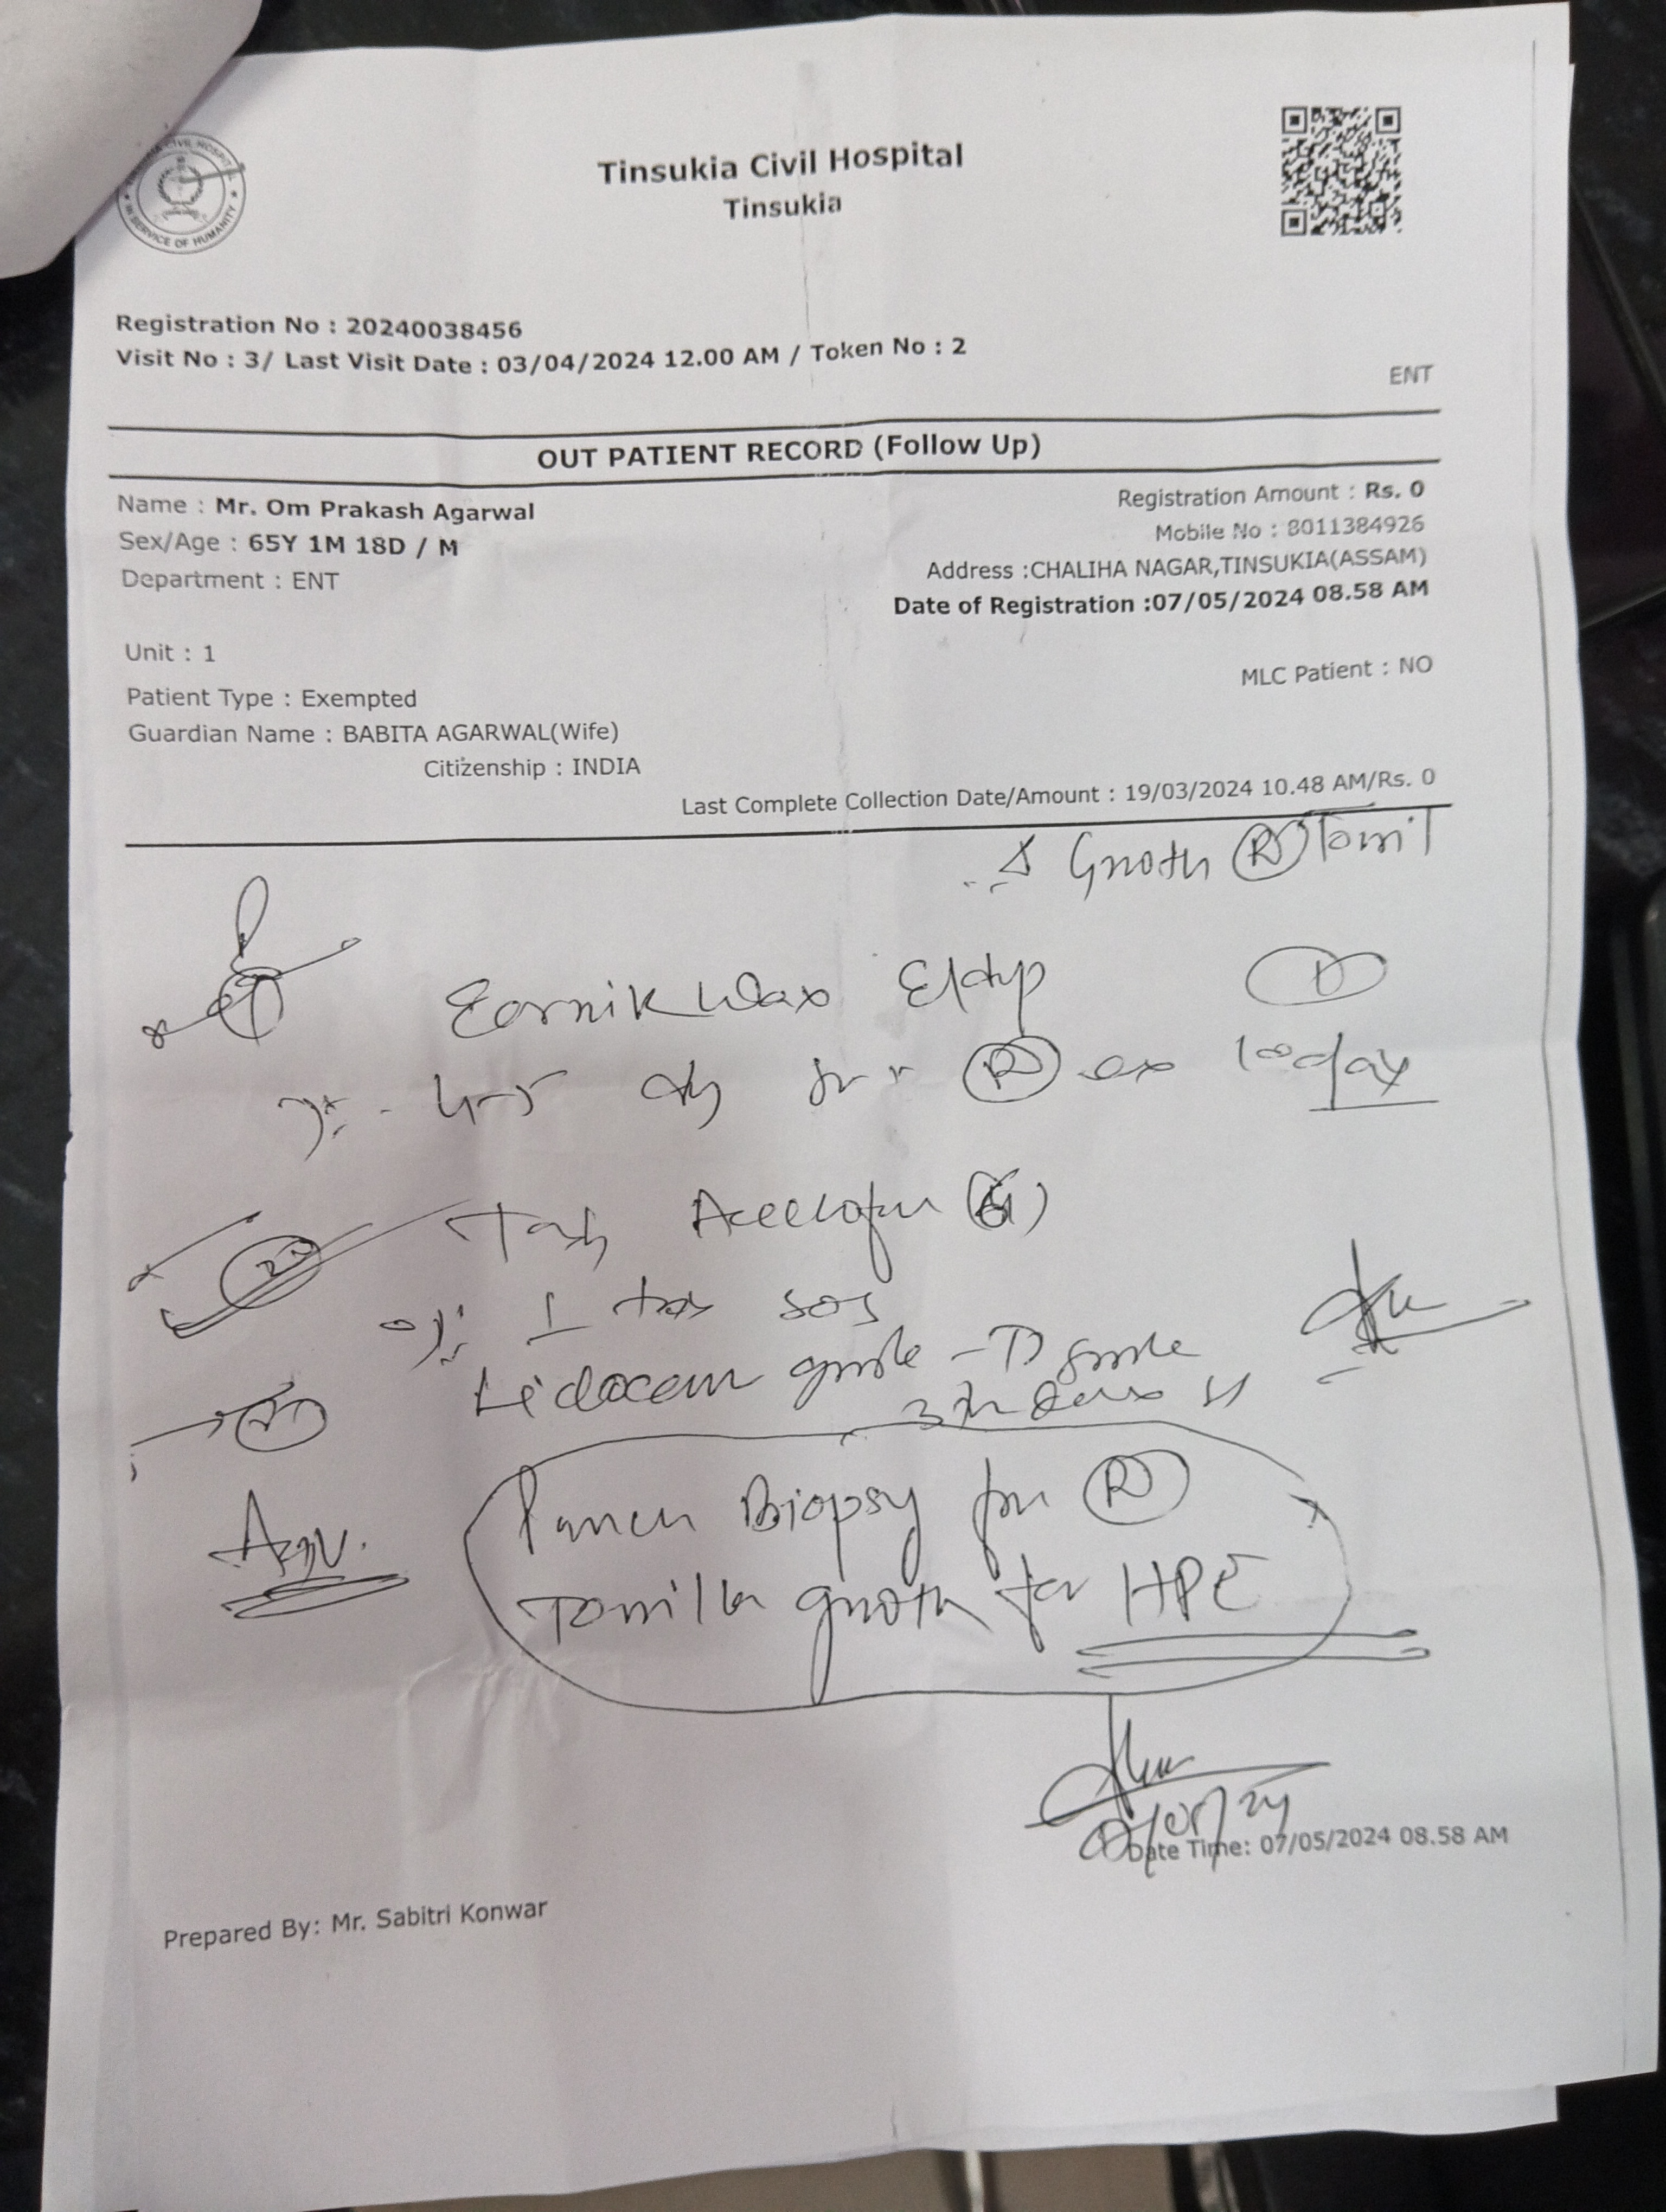 TINSUKIA CIVIL HOSPITAL
IN SERVICE OF HUMANITY
Tinsukia Civil Hospital
Tinsukia
Registration No : 20240038456
Visit No : 3/ Last Visit Date : 03/04/2024 12.00 AM / Token No : 2
ENT
OUT PATIENT RECORD (Follow Up)
Name : Mr. Om Prakash Agarwal
Registration Amount : Rs. 0
Sex/Age : 65Y 1M 18D / M
Mobile No : 8011384926
Department : ENT
Address :CHALIHA NAGAR,TINSUKIA(ASSAM)
Date of Registration :07/05/2024 08.58 AM
Unit : 1
MLC Patient : NO
Patient Type : Exempted
Guardian Name : BABITA AGARWAL(Wife)
Citizenship : INDIA
Last Complete Collection Date/Amount : 19/03/2024 10.48 AM/Rs. 0
Growth (R) Tonsil
Wax E/dp
4-5 (R) 10 day
Tab
1 tab SOS
gargle
Adv.
Punch Biopsy for (R)
Tonsillar growth for HPE
Date Time: 07/05/2024 08.58 AM
Prepared By: Mr. Sabitri Konwar